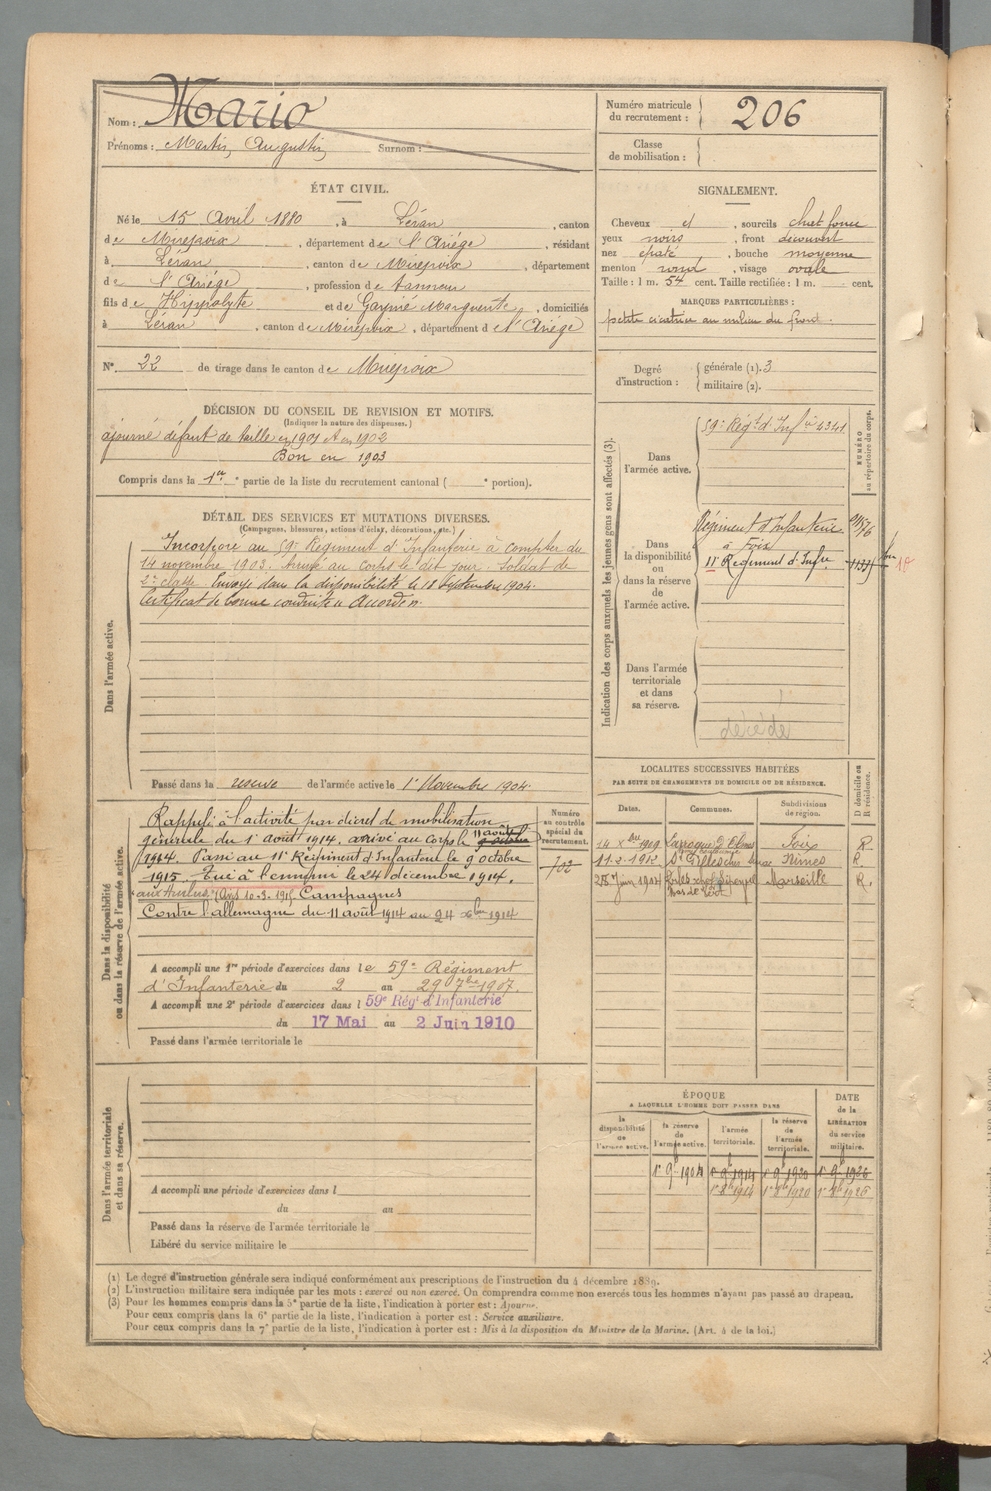 Nom : Mario
Prénoms : Martin, Augustin Surnom :
Numéro matricule du recrutement : 206
Classe de mobilisation :
ÉTAT CIVIL.
Né le 15 Avril 1880, à Léran, canton
de Mirepoix, département de l'Ariège, résidant
à Léran, canton de Mirepoix, département
de l'Ariège, profession de tanneur
fils de Hippolyte et de Garynié Marguerite, domiciliés
à Léran, canton de Mirepoix, département de l'Ariège
N° 22 de tirage dans le canton de Mirepoix
SIGNALEMENT.
Cheveux et, sourcils chat foncé
yeux noirs, front découvert
nez épaté, bouche moyenne
menton rond, visage ovale
Taille : 1 m. 54 cent. Taille rectifiée : 1 m. cent.
MARQUES PARTICULIÈRES :
petite cicatrice au milieu du front.
Degré d'instruction : générale (1). 3
militaire (2).
DÉCISION DU CONSEIL DE REVISION ET MOTIFS.
(Indiquer la nature des dispenses.)
ajourné défaut de taille en 1901 et en 1902
Bon en 1903
Compris dans la 1re partie de la liste du recrutement cantonal ( e portion).
DÉTAIL DES SERVICES ET MUTATIONS DIVERSES.
(Campagnes, blessures, actions d'éclat, décorations, etc.)
Dans l'armée active.
Incorporé au 59e Régiment d'Infanterie à compter du
14 novembre 1903. Arrivé au Corps le dit jour. Soldat de
2e classe. Envoyé dans la disponibilité le 18 Septembre 1904.
Certificat de bonne conduite "Accordé".
Passé dans la réserve de l'armée active le 1er Novembre 1904.
Indication des corps auxquels les jeunes gens sont affectés (3).
NUMÉRO au répertoire du corps.
Dans l'armée active.
59e Régt d'Infie 4341
Dans la disponibilité ou dans la réserve de l'armée active.
Régiment d'Infanterie
à Foix
11e Régiment d'Infie
Dans l'armée territoriale et dans sa réserve.
décédé
Dans la disponibilité ou dans la réserve de l'armée active.
Numéro au contrôle spécial du recrutement.
702
Rappelé à l'activité par décret de mobilisation
générale du 1er août 1914. arrivé au corps le 11 août
1914. Passé au 11e Régiment d'Infanterie le 9 octobre
1915. Tué à l'ennemi le 24 décembre 1914.
(avis 10-3-1915) Campagnes
Contre l'allemagne du 11 août 1914 au 24 Xbre 1914
A accompli une 1re période d'exercices dans le 59e Régiment
d'Infanterie du 2 au 29 7bre 1907.
A accompli une 2e période d'exercices dans l 59e Rég d'Infanterie
du 17 Mai au 2 Juin 1910
Passé dans l'armée territoriale le
LOCALITES SUCCESSIVES HABITÉES
PAR SUITE DE CHANGEMENTS DE DOMICILE OU DE RÉSIDENCE.
Dates. Communes. Subdivisions de région. D domicile ou R résidence.
14 Xbre 1909 Laroque d'Olmes Foix R
11-2-1912 St Gilles Nimes R
28 juin 1914 Marseille R.
ÉPOQUE
A LAQUELLE L'HOMME DOIT PASSER DANS
la disponibilité de l'armée active. la réserve de l'armée active. l'armée territoriale. la réserve de l'armée territoriale. DATE de la LIBÉRATION du service militaire.
1er 9b 1904 1er 9b 1914 1er 9b 1920 1er 9b 1926
1er 8b 1914 1er 8b 1920 1er 8b 1926
Dans l'armée territoriale et dans sa réserve.
A accompli une période d'exercices dans l
du au
Passé dans la réserve de l'armée territoriale le
Libéré du service militaire le
(1) Le degré d'instruction générale sera indiqué conformément aux prescriptions de l'instruction du 4 décembre 1889.
(2) L'instruction militaire sera indiquée par les mots : exercé ou non exercé. On comprendra comme non exercés tous les hommes n'ayant pas passé au drapeau.
(3) Pour les hommes compris dans la 5e partie de la liste, l'indication à porter est : Ajourné.
Pour ceux compris dans la 6e partie de la liste, l'indication à porter est : Service auxiliaire.
Pour ceux compris dans la 7e partie de la liste, l'indication à porter est : Mis à la disposition du Ministre de la Marine. (Art. 4 de la loi.)